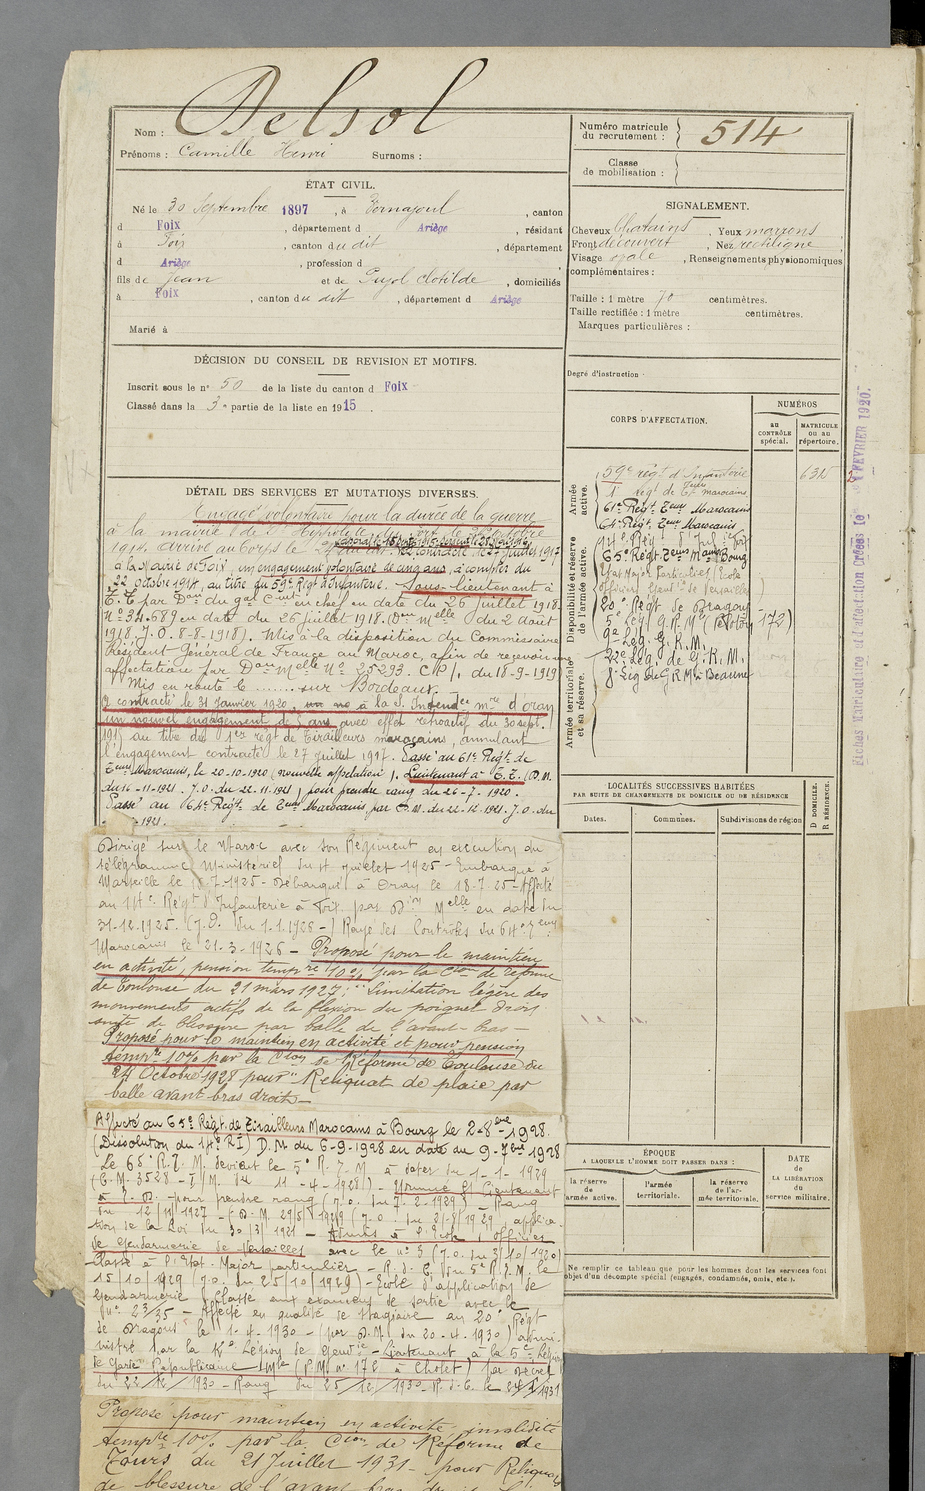 Nom : Delsol
Prénoms : Camille Henri Surnoms :
Numéro matricule du recrutement : 514
Classe de mobilisation :
ÉTAT CIVIL.
Né le 30 Septembre 1897, à Vernajoul, canton
d Foix, département d Ariège, résidant
à Foix, canton du dit, département
d Ariège, profession d
fils de Jean et de Pujol Clotilde, domiciliés
à Foix, canton du dit, département d Ariège
Marié à
SIGNALEMENT.
Cheveux Chatains. Yeux marrons
Front découvert, Nez rectiligne
Visage ovale, Renseignements physionomiques
complémentaires :
Taille : 1 mètre 70 centimètres.
Taille rectifiée : 1 mètre centimètres.
Marques particulières :
Degré d'instruction
DÉCISION DU CONSEIL DE REVISION ET MOTIFS.
Inscrit sous le n° 50 de la liste du canton d Foix
Classé dans la 3e partie de la liste en 1915.
CORPS D'AFFECTATION.
NUMÉROS
au CONTRÔLE spécial.
MATRICULE ou au répertoire.
Armée active.
Disponibilité et réserve de l'armée active.
Armée territoriale et sa réserve.
59e régt d'Infanterie
1er régt de Tirrs marocains
61e Régt Teurs Marocains
64e Régt Teurs Marocains
14e Rég d'Inf Foix
65e Régt Teurs Maroc Bourg
Etat Major Particulier (Ecole
officiers Gendrie de Versailles)
20e Régt de Dragons
5e Lég G.R.Me (Peloton 172)
9e Lég. G.R.M.
22e Lég. de G.R.M.
8e Lég de G R M à Beaune
Fiches Matriculaire et d'affectation Créées le FEVRIER 1920.
DÉTAIL DES SERVICES ET MUTATIONS DIVERSES.
Engagé volontaire pour la durée de la guerre
à la mairie de St Hippolyte
1914. arrivé au corps le contracté le 27 juillet 1917
à la Mairie de Foix, un engagement volontaire de cinq ans, à compter du
22 octobre 1914, au titre du 59e Régt d'Infanterie. Sous-lieutenant à
T.T. par Don du gal Cmt en chef en date du 26 juillet 1918
N° 34.689 en date du 26 juillet 1918. (Don Melle du 2 août
1918. J.O. 8-8-1918). Mis à la disposition du Commissaire
Résident Général de France au Maroc, afin de recevoir une
affectation par Don Melle N° 25293 C/P/. du 18-9-1919
Mis en route le ........ sur Bordeaux.
A contracté le 31 Janvier 1920, à la S. Intendce mre d'oran
un nouvel engagement de 5 ans, avec effet rétroactif du 30 sept.
1919 au titre des 1er régt de Tirailleurs marocains, annulant
l'engagement contracté le 27 juillet 1917. Passé au 61e Régt de
Teurs Marocains, le 20-10-1920 (nouvelle appellation). Lieutenant à T.T. (D.M.
du 16-11-1921. J.O. du 22-11-1921) pour prendre rang du 26-7-1920.
Passé au 64e Régt de Teurs Marocains par D.M. du 22-12-1921. J.O. du
Dirigé sur le Maroc avec son Régiment en exécution du
télégramme Ministériel du 4 juillet 1925 - Embarqué à
Marseille le 15-7-1925 - Débarqué à Oran le 18-7-25 - Affecté
au 14e Régt d'Infanterie à Foix par Don Melle en date du
31-12-1925. (J.O. du 1-1-1926 -) Rayé des Contrôles du 64e Teurs
Marocains le 21-3-1926 - Proposé pour le maintien
en activité, pension tempre 10% par la Cion de réforme
de Toulouse du 21 mars 1927 : "limitation légère des
mouvements actifs de la flexion du poignet droit
suite de blessure par balle de l'avant-bras -
Proposé pour le maintien en activité et pour pension
temp.re 10% par la Cion de Réforme de Toulouse du
24 Octobre 1928 pour "Reliquat de plaie par
balle avant-bras droit -
Affecté au 65e Régt. de Tirailleurs Marocains à Bourg le 2-8bre-1928.
(Dissolution du 14e R.I) D.M. du 6-9-1928 en date du 9-7bre 1928
Le 65e R.T.M. devient le 5e R.T.M. à dater du 1-1-1929
(C.M. 3528 - I/M. du 11-4-1928) - Nommé St Lieutenant
à T.D. - pour prendre rang (J.O. du 7-2-1929) - Rang
du 12/11/1927 - (D.M. 29/5/1929 (J.O. du 31/5/1929 applica-
tion de la Loi du 30/3/1921 - Admis à l'Ecole d'officiers
de gendarmerie de Versailles avec le n° 3 (J.O. du 3/10/1920)
Passé à l'Etat-Major particulier - R.d.C. du 5e R.T.M. le
15/10/1929 (J.O. du 25/10/1929) - Ecole d'application de
Gendarmerie (Classé aux examens de sortie avec le
n° 23/35 - Affecté en qualité de stagiaire au 20e Régt
de Dragons le 1-4-1930 - (par D.M. du 20-4-1930) admi-
nistré par la Légion de Gendie - Lieutenant à la 5e Légion
de Garde Républicaine Mle (P.M. n° 172 à Cholet) par décret
du 22/12/1930 - Rang du 25/12/1930 - R.d.C. le 1931
Proposé pour maintien en activité invalidité
temp.re 10% par la Cion de Réforme de
Tours du 21 Juillet 1931 - pour Reliquat
de blessure de l'avant-bras
LOCALITÉS SUCCESSIVES HABITÉES
PAR SUITE DE CHANGEMENTS DE DOMICILE OU DE RÉSIDENCE
Dates.
Communes.
Subdivisions de région
D DOMICILE. R RÉSIDENCE.
ÉPOQUE
A LAQUELLE L'HOMME DOIT PASSER DANS :
la réserve de l'armée active.
l'armée territoriale.
la réserve de l'armée territoriale.
DATE DE LA LIBÉRATION du service militaire.
Ne remplir ce tableau que pour les hommes dont les services font
l'objet d'un décompte spécial (engagés, condamnés, omis, etc.).